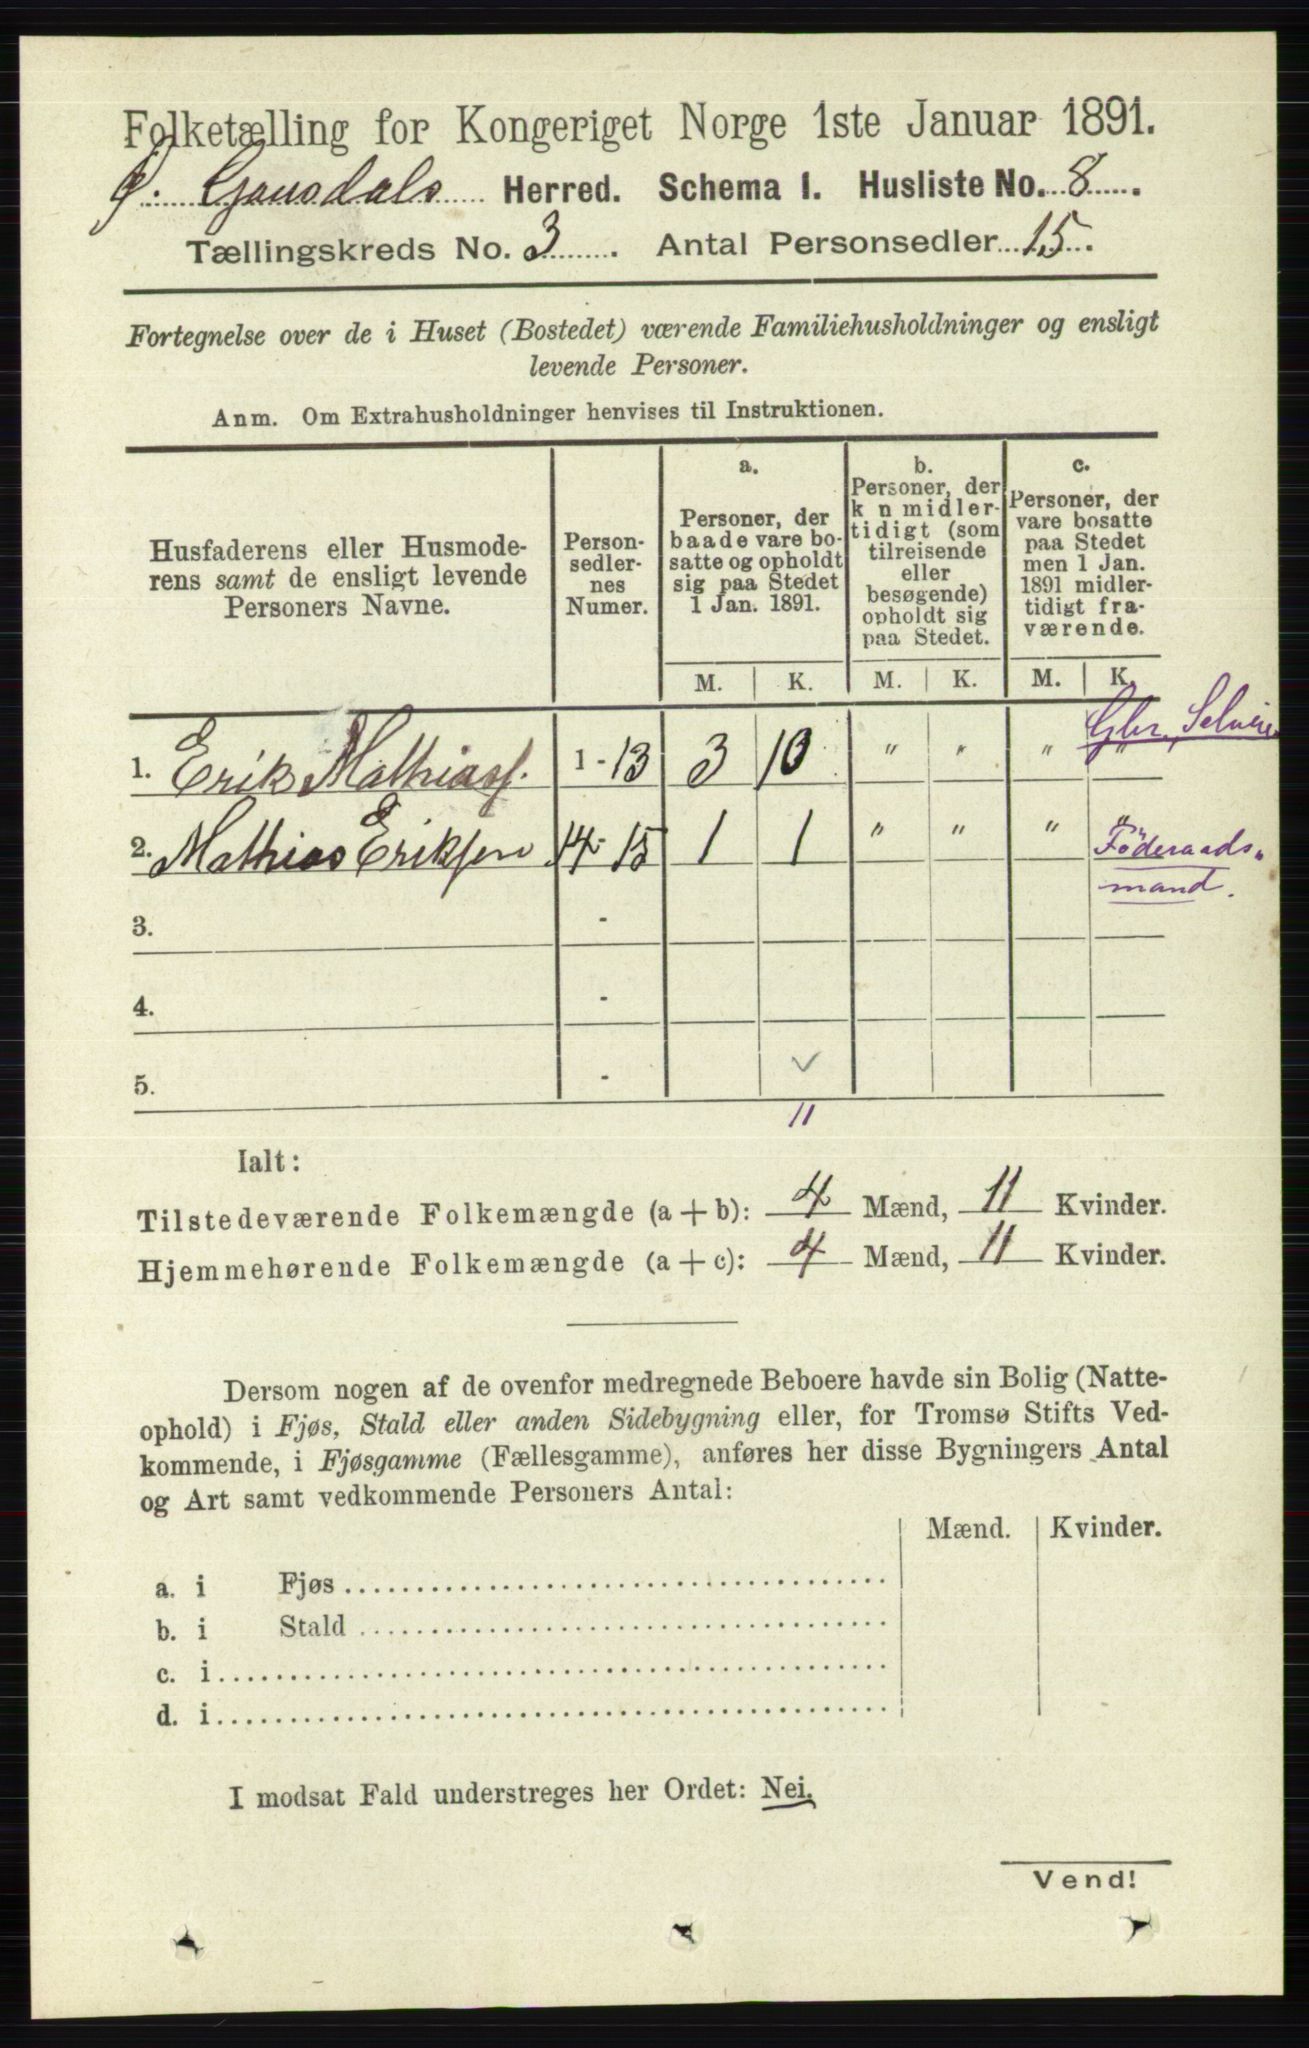 Folketælling for Kongeriget Norge 1ste Januar 1891.
Ø. Gausdals Herred. Schema 1. Husliste No. 8.
Tællingskreds No. 3. Antal Personsedler 15.
Fortegnelse over de i Huset (Bostedet) værende Familiehusholdninger og ensligt
levende Personer.
Anm. Om Extrahusholdninger henvises til Instruktionen.
Husfaderens eller Husmode-
rens samt de ensligt levende
Personers Navne.
Person-
sedler-
nes
Numer.
a.
Personer, der
baade vare bo-
satte og opholdt
sig paa Stedet
1 Jan. 1891.
b.
Personer, der
k n midler-
tidigt (som
tilreisende
eller
besøgende)
opholdt sig
paa Stedet.
c.
Personer, der
vare bosatte
paa Stedet
men 1 Jan.
1891 midler-
tidigt fra-
værende.
M. K. M. K. M. K.
1. Erik Mathiass. 1 - 13 3 10 " " " " Gbr., Selveier
2. Mathias Eriksen 14 - 15 1 1 " " " " Föderaads-
mand.
3. -
4. -
5. -
11
Ialt:
Tilstedeværende Folkemængde (a + b): 4 Mænd, 11 Kvinder.
Hjemmehørende Folkemængde (a + c): 4 Mænd, 11 Kvinder.
Dersom nogen af de ovenfor medregnede Beboere havde sin Bolig (Natte-
ophold) i Fjøs, Stald eller anden Sidebygning eller, for Tromsø Stifts Ved-
kommende, i Fjøsgamme (Fællesgamme), anføres her disse Bygningers Antal
og Art samt vedkommende Personers Antal:
Mænd. Kvinder.
a. i Fjøs
b. i Stald
c. i
d. i
I modsat Fald understreges her Ordet: Nei.
Vend!